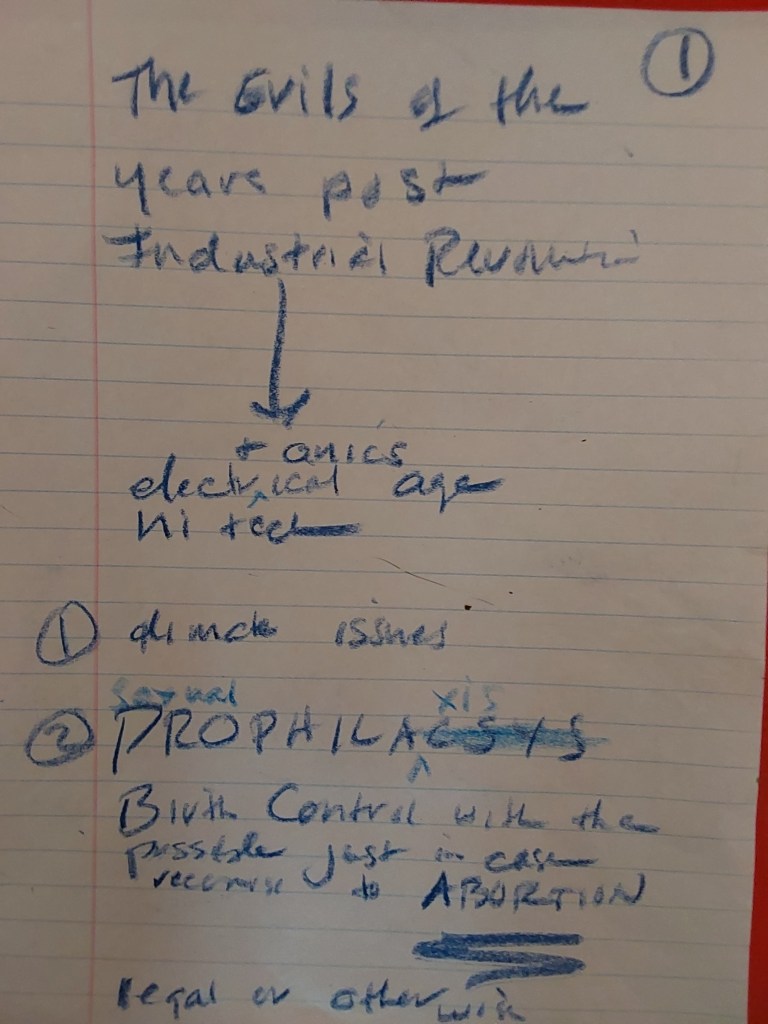 ①
The Evils of the
years post
Industrial
+ anics
electrical age
hi tech
① climate issues
sexual xis
② PROPHILACSYS
Birth Control with the
possible just in case
recourse to ABORTION
legal or other wise